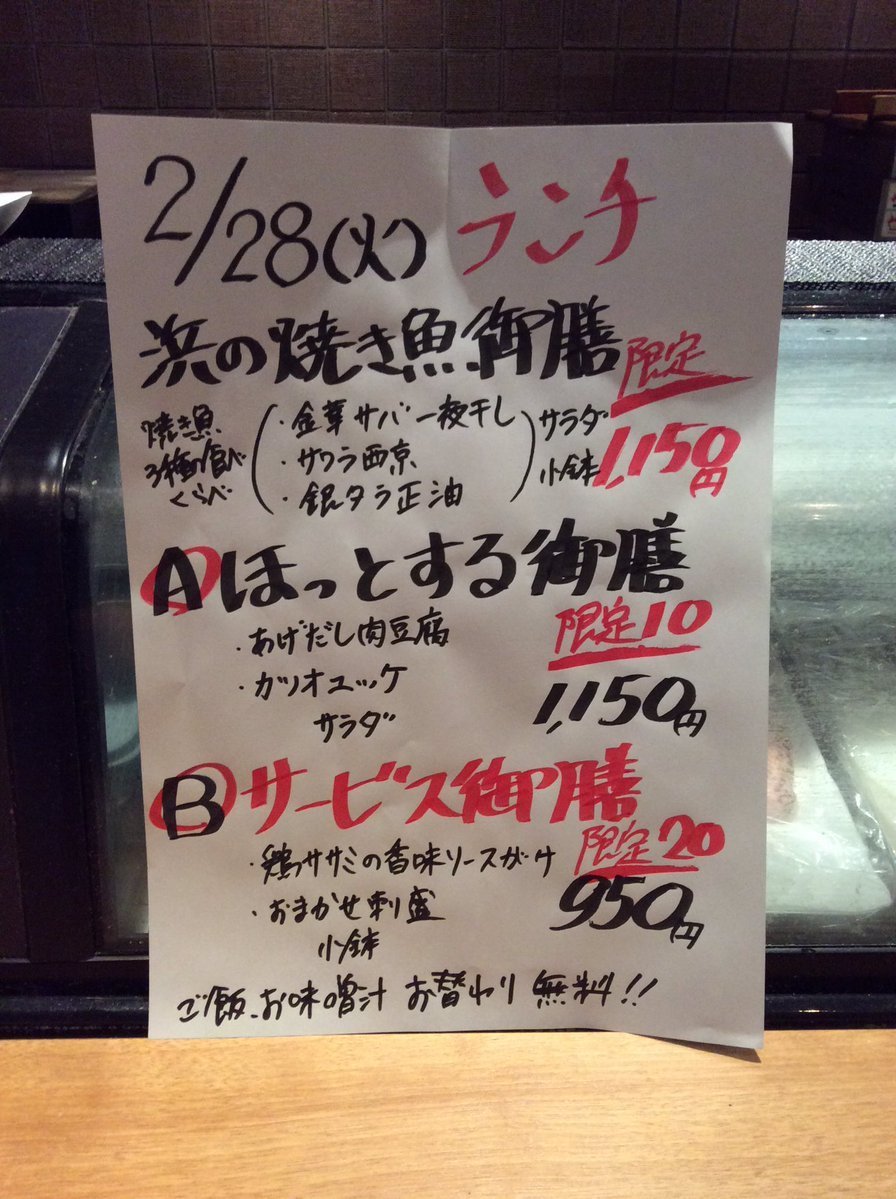 2/28(火) ランチ
浜の焼き魚御膳 限定
焼き魚
3種の食べ
くらべ
・金華サバ一夜干し
・サワラ西京
・銀タラ正油
サラダ
小鉢
1,150円
A ほっとする御膳
・あげだし肉豆腐
限定10
・カツオユッケ
サラダ
1,150円
B サービス御膳
・鶏ササミの香味ソースがけ
限定20
・おまかせ刺盛
小鉢
950円
ご飯、お味噌汁 お替わり 無料!!